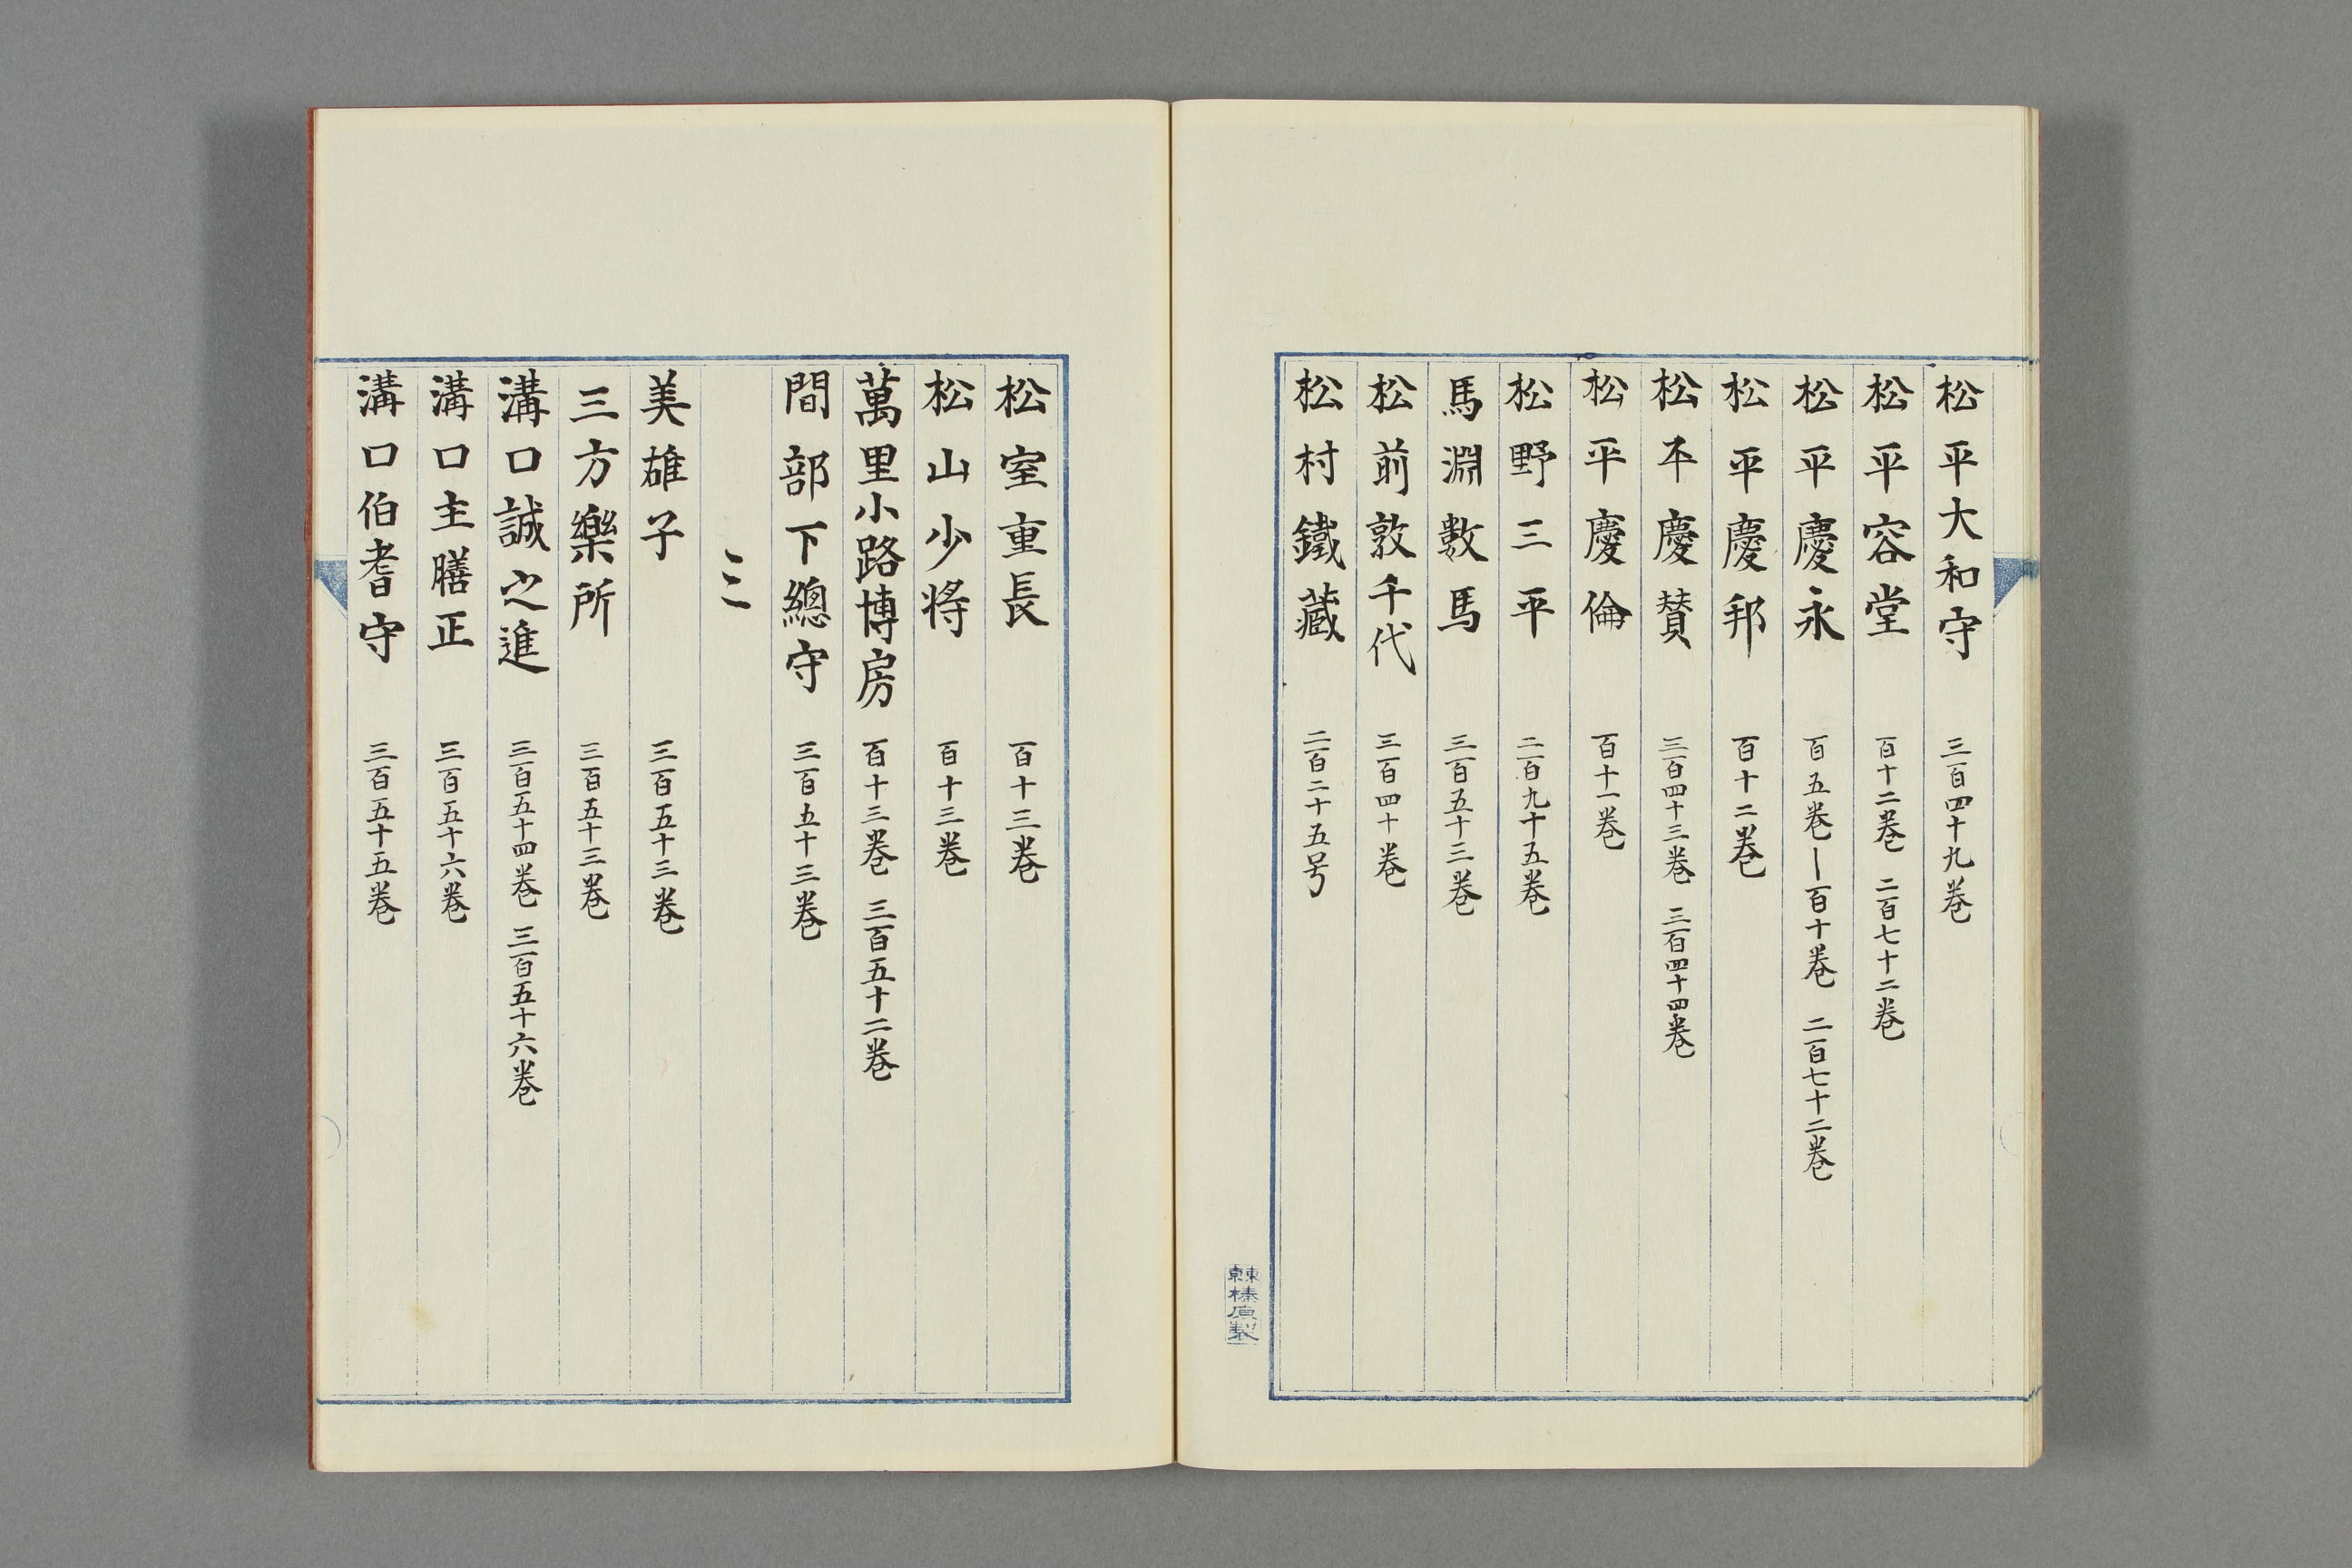 松平大和守 三百四十九巻
松平容堂 百十二巻 二百七十二巻
松平慶永 百五巻ー百十巻 二百七十二巻
松平慶邦 百十二巻
松平慶賛 三百四十三巻 三百四十四巻
松平慶倫 百十一巻
松野三平 二百九十五巻
馬淵數馬 三百五十三巻
松前敦千代 三百四十巻
松村鐵藏 二百二十五号
東京榛原製
松室重長 百十三巻
松山少将 百十三巻
萬里小路博房 百十三巻 三百五十二巻
間部下總守 三百五十三巻
ミ
美雄子 三百五十三巻
三方樂所 三百五十三巻
溝口誠之進 三百五十四巻 三百五十六巻
溝口主膳正 三百五十六巻
溝口伯耆守 三百五十五巻